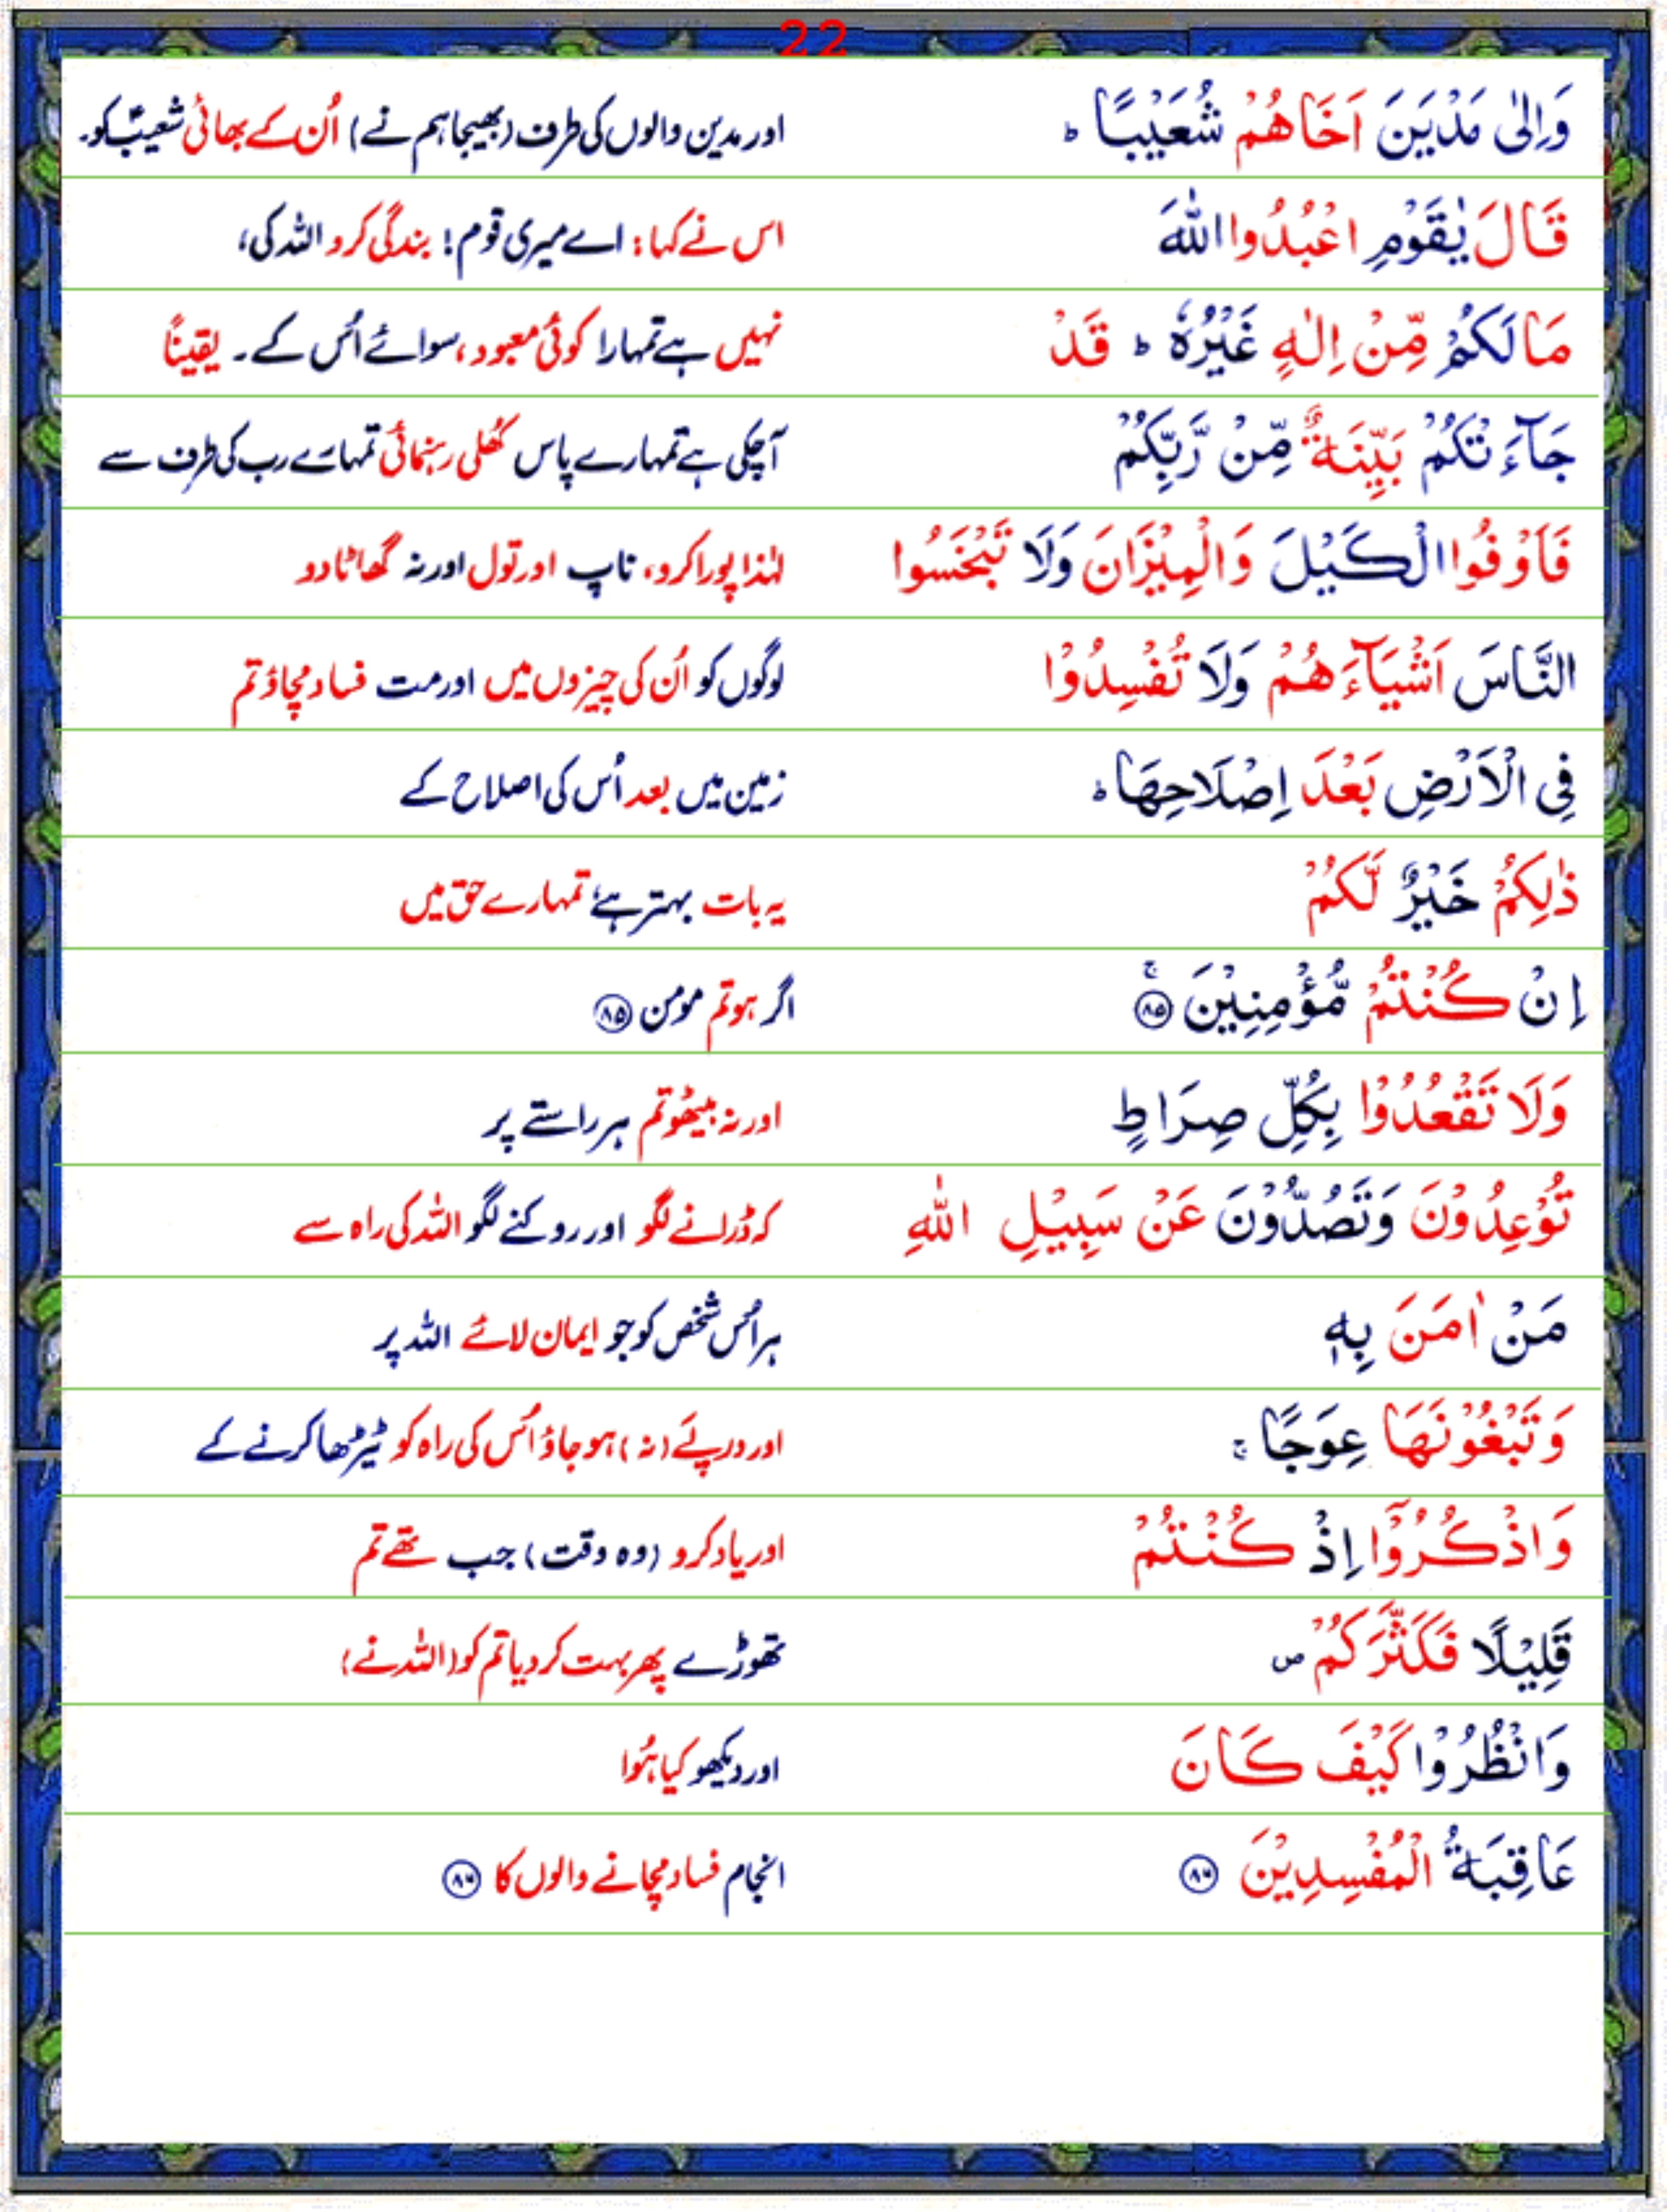 22
وَاِلٰى مَدْيَنَ اَخَاهُمْ شُعَيْبًا ؕ اور مدین والوں کی طرف (بھیجا ہم نے) اُن کے بھائی شعیبؑ کو۔
قَالَ يٰقَوْمِ اعْبُدُوا اللّٰهَ اس نے کہا: اے میری قوم! بندگی کرو اللہ کی،
مَا لَكُمْ مِّنْ اِلٰهٍ غَيْرُهٗ ؕ قَدْ نہیں ہے تمہارا کوئی معبود، سوائے اُس کے۔ یقیناً
جَآءَتْكُمْ بَيِّنَةٌ مِّنْ رَّبِّكُمْ آچکی ہے تمہارے پاس کھُلی رہنمائی تمہارے رب کی طرف سے
فَاَوْفُوا الْكَيْلَ وَالْمِيْزَانَ وَلَا تَبْخَسُوا لہٰذا پورا کرو، ناپ اور تول اور نہ گھاٹا دو
النَّاسَ اَشْيَآءَهُمْ وَلَا تُفْسِدُوْا لوگوں کو اُن کی چیزوں میں اور مت فساد مچاؤ تم
فِى الْاَرْضِ بَعْدَ اِصْلَاحِهَا ؕ زمین میں بعد اُس کی اصلاح کے
ذٰلِكُمْ خَيْرٌ لَّكُمْ یہ بات بہتر ہے تمہارے حق میں
اِنْ كُنْتُمْ مُّؤْمِنِيْنَ ۚ ۸۵ اگر ہو تم مومن ۸۵
وَلَا تَقْعُدُوْا بِكُلِّ صِرَاطٍ اور نہ بیٹھو تم ہر راستے پر
تُوْعِدُوْنَ وَتَصُدُّوْنَ عَنْ سَبِيْلِ اللّٰهِ کہ ڈرانے لگو اور روکنے لگو اللہ کی راہ سے
مَنْ اٰمَنَ بِهٖ ہر اُس شخص کو جو ایمان لائے اللہ پر
وَتَبْغُوْنَهَا عِوَجًا ۚ اور درپئے (نہ) ہو جاؤ اُس کی راہ کو ٹیڑھا کرنے کے
وَاذْكُرُوْٓا اِذْ كُنْتُمْ اور یاد کرو (وہ وقت) جب تھے تم
قَلِيْلًا فَكَثَّرَكُمْ ۪ تھوڑے پھر بہت کر دیا تم کو (اللہ نے)
وَانْظُرُوْا كَيْفَ كَانَ اور دیکھو کیا ہُوا
عَاقِبَةُ الْمُفْسِدِيْنَ ۸۶ انجام فساد مچانے والوں کا ۸۶